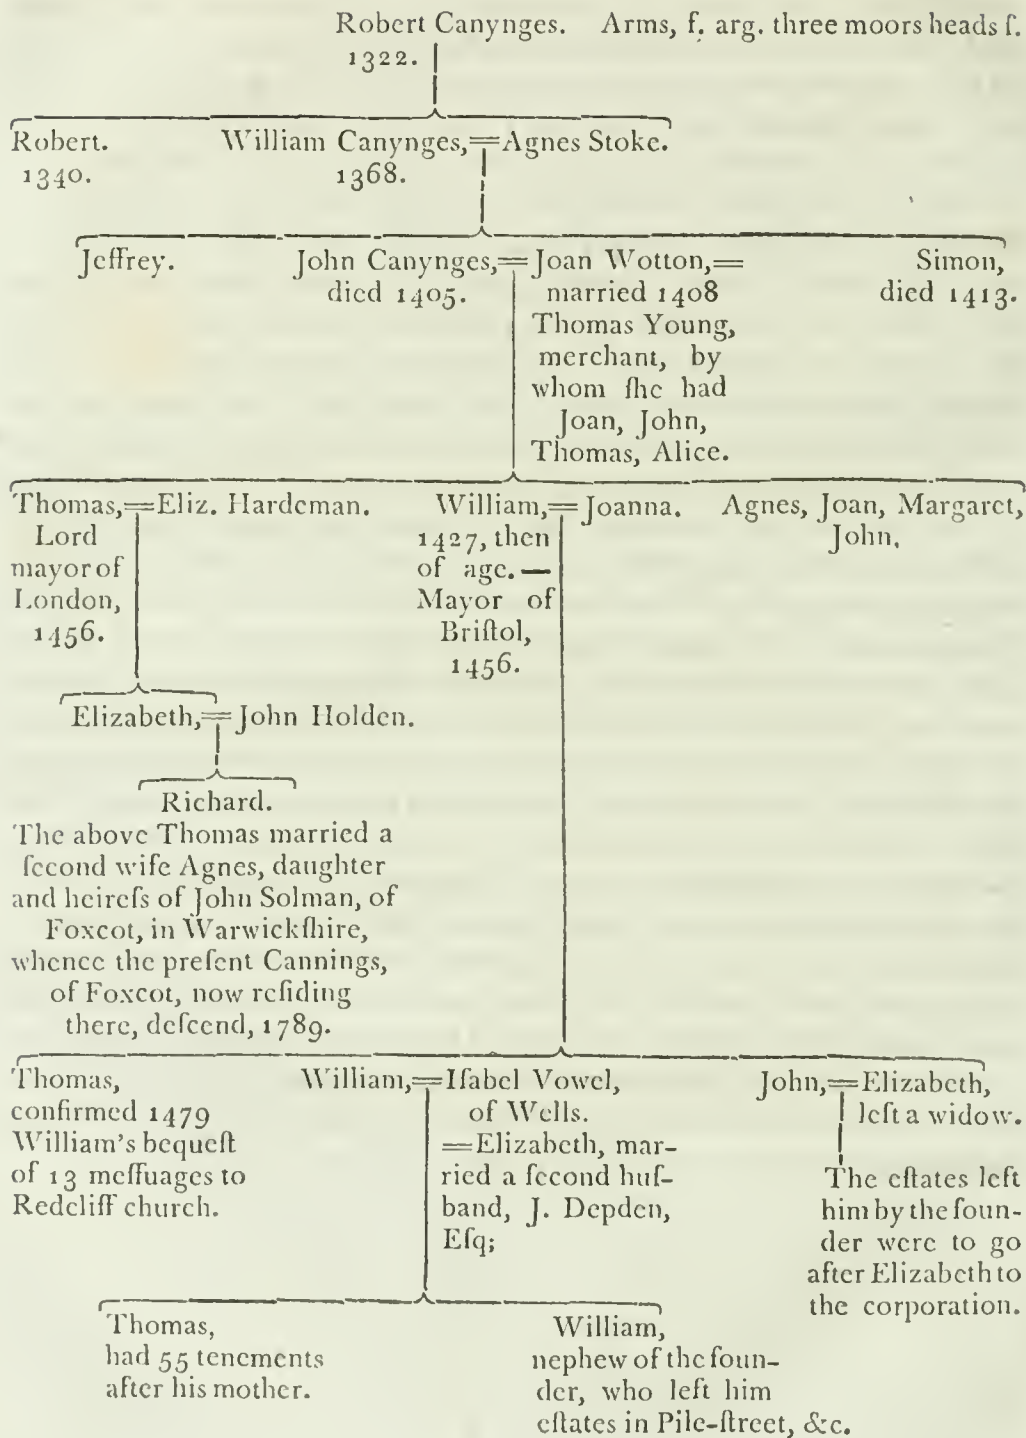 Robert Canynges. Arms, ſ. arg. three moors heads ſ.
1322.
Robert.
1340.
William Canynges,=Agnes Stoke.
1368.
Jeffrey.
John Canynges,=
died 1405.
Joan Wotton,=
married 1408
Thomas Young,
merchant, by
whom ſhe had
Joan, John,
Thomas, Alice.
Simon,
died 1413.
Thomas,=Eliz. Hardeman.
Lord
mayor of
London,
1456.
William,=Joanna.
1427, then
of age.—
Mayor of
Briſtol,
1456.
Agnes, Joan, Margaret,
John.
Elizabeth,=John Holden.
Richard.
The above Thomas married a
ſecond wife Agnes, daughter
and heireſs of John Solman, of
Foxcot, in Warwickſhire,
whence the preſent Cannings,
of Foxcot, now reſiding
there, deſcend, 1789.
Thomas,
confirmed 1479
William's bequeſt
of 13 meſſuages to
Redcliff church.
William,=Iſabel Vowel,
of Wells.
=Elizabeth, mar-
ried a ſecond huſ-
band, J. Depden,
Eſq;
John,=Elizabeth,
left a widow.
The eſtates left
him by the foun-
der were to go
after Elizabeth to
the corporation.
Thomas,
had 55 tenements
after his mother.
William,
nephew of the foun-
der, who left him
eſtates in Pile-ſtreet, &c.